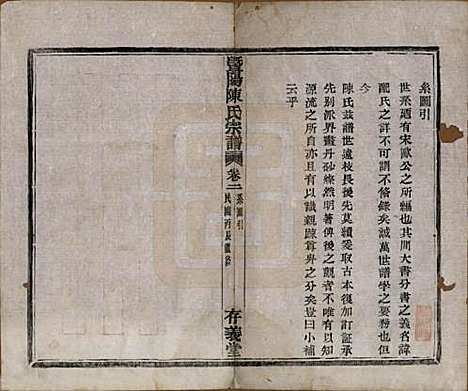 系圖引
世系廼有宋歐公之所為也其間大書分書之義名諱
配氏之詳不可謂不條錄矣誠萬世譜學之要務也付
今
陳氏茲譜世遠枝長後先莫續爰取古本復加訂証承
先別派界畫丹砂燦然明著俾後之覽者不唯有以知
源流之所自亦且有以識親踈尊卑之分矣豈曰小補
云乎
暨陽陳氏宗譜 卷二 系圖引
民國丙辰重修
存義堂